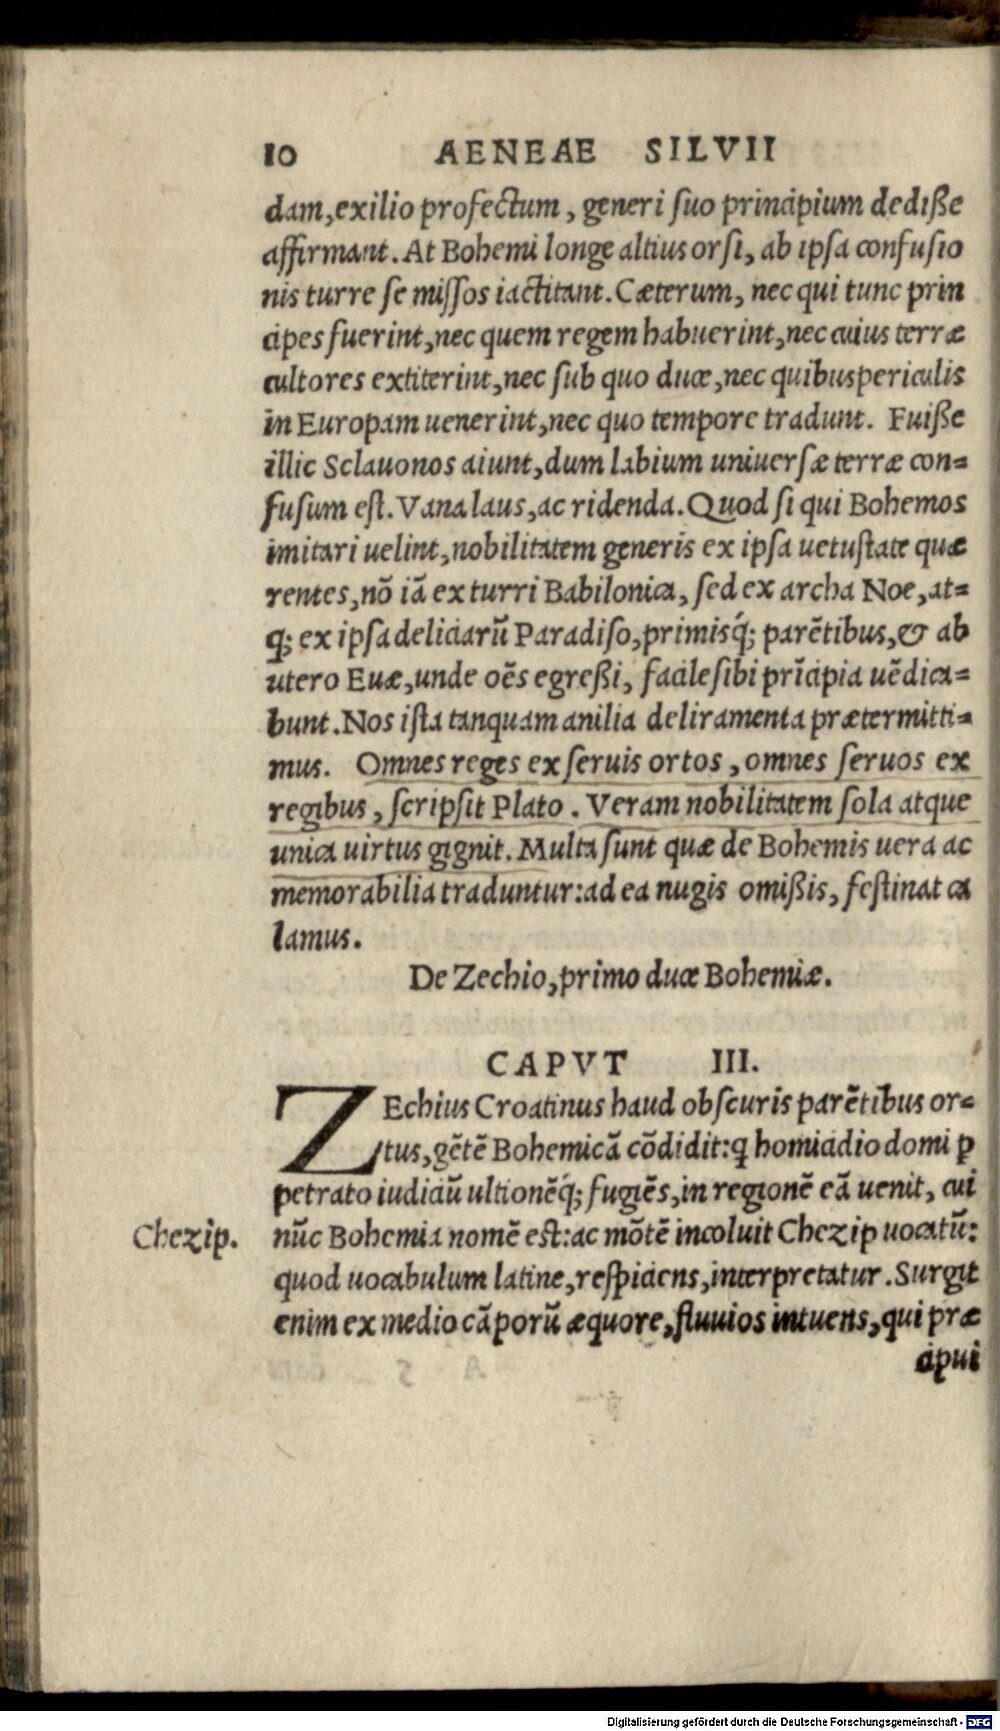 10 AENEAE SILVII
dam, exilio profectum, generi ſuo principium dediße
affirmant. At Bohemi longe altius orſi, ab ipſa confuſio
nis turre ſe miſſos iactitant. Cæterum, nec qui tunc prin
cipes fuerint, nec quem regem habuerint, nec cuius terræ
cultores extiterint, nec ſub quo duce, nec quibus periculis
in Europam uenerint, nec quo tempore tradunt. Fuiße
illic Sclauonos aiunt, dum labium uniuerſæ terræ con=
fuſum eſt. Vana laus, ac ridenda. Quod ſi qui Bohemos
imitari uelint, nobilitatem generis ex ipſa uetuſtate quæ
rentes, nõ iã ex turri Babilonica, ſed ex archa Noe, at=
q; ex ipſa deliciarũ Paradiſo, primisq́; parẽtibus, & ab
utero Euæ, unde oẽs egreßi, facile ſibi prĩcipia uẽdica=
bunt. Nos iſta tanquam anilia deliramenta prætermitti=
mus. Omnes reges ex ſeruis ortos, omnes ſeruos ex
regibus, ſcripſit Plato. Veram nobilitatem ſola atque
unica uirtus gignit. Multa ſunt quæ de Bohemis uera ac
memorabilia traduntur: ad ea nugis omißis, feſtinat ca
lamus.
De Zechio, primo duce Bohemiæ.
CAPVT III.
ZEchius Croatinus haud obſcuris parẽtibus or=
tus, gẽtẽ Bohemicã cõdidit: ꝗ homicidio domi ꝑ
petrato iudiciũ ultionẽq́; fugiẽs, in regionẽ eã uenit, cui
Chezip.
nũc Bohemia nomẽ eſt: ac mõtẽ incoluit Chezip uocatũ:
quod uocabulum latine, reſpiciens, interpretatur. Surgit
enim ex medio cãporũ æquore, fluuios intuens, qui præ
cipui
Digitalisierung gefördert durch die Deutsche Forschungsgemeinschaft - DFG